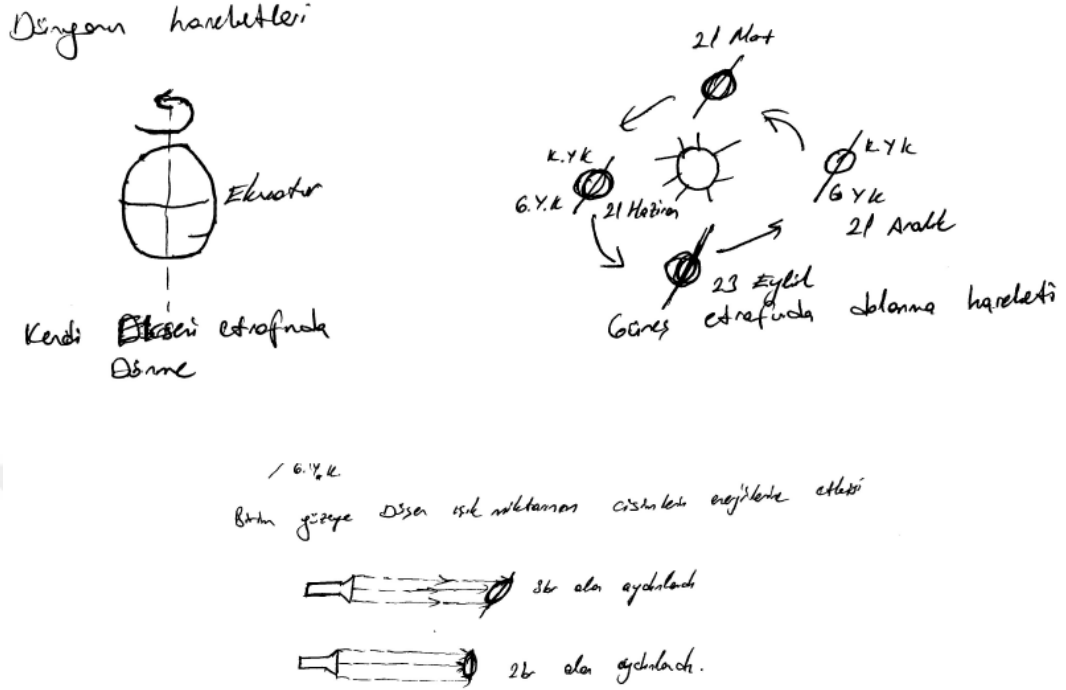 Dünyanın hareketleri
Ekvator
Kendi Ekseni etrafında
Dönme
21 Mart
K.Y.K
G.Y.K
21 Haziran
K.Y.K
G Y K
21 Aralık
23 Eylül
Güneş etrafında dolanma hareketi
/ G.Y.K.
Birim yüzeye Düşen ışık miktarının cisimlerin enerjilerine etkisi
3br alan aydınlandı
2br alan aydınlandı.